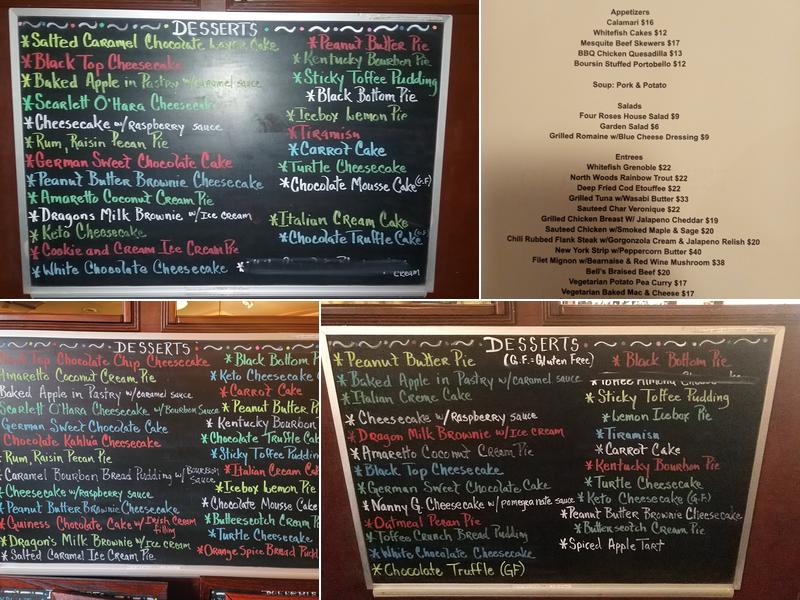 DESSERTS
*Salted Caramel Chocolate Layer Cake
*Black Top Cheesecake
*Baked Apple in Pastry w/caramel sauce
*Scarlett O'Hara Cheesecake
*Cheesecake w/Raspberry sauce
*Rum, Raisin Pecan Pie
*German Sweet Chocolate Cake
*Peanut Butter Brownie Cheesecake
*Amaretto Coconut Cream Pie
*Dragons Milk Brownie w/Ice cream
*Keto Cheesecake
*Cookie and Cream Ice Cream Pie
*White Chocolate Cheesecake
*Peanut Butter Pie
*Kentucky Bourbon Pie
*Sticky Toffee Pudding
*Black Bottom Pie
*Icebox Lemon Pie
*Tiramisu
*Carrot Cake
*Turtle Cheesecake
*Chocolate Mousse Cake (G.F)
*Italian Cream Cake
*Chocolate Truffle Cake
*
cream
Appetizers
Calamari $16
Whitefish Cakes $12
Mesquite Beef Skewers $17
BBQ Chicken Quesadilla $13
Boursin Stuffed Portobello $12
Soup: Pork & Potato
Salads
Four Roses House Salad $9
Garden Salad $6
Grilled Romaine w/Blue Cheese Dressing $9
Entrees
Whitefish Grenoble $22
North Woods Rainbow Trout $22
Deep Fried Cod Etouffee $22
Grilled Tuna w/Wasabi Butter $33
Sauteed Char Veronique $22
Grilled Chicken Breast W/ Jalapeno Cheddar $19
Sauteed Chicken w/Smoked Maple & Sage $20
Chili Rubbed Flank Steak w/Gorgonzola Cream & Jalapeno Relish $20
New York Strip w/Peppercorn Butter $40
Filet Mignon w/Bearnaise & Red Wine Mushroom $38
Bell's Braised Beef $20
Vegetarian Potato Pea Curry $17
Vegetarian Baked Mac & Cheese $17
DESSERTS
Top Chocolate Chip Cheesecake
Amaretto Coconut Cream Pie
Baked Apple in Pastry w/caramel sauce
Scarlett O'Hara Cheesecake w/Bourbon Sauce
German Sweet Chocolate Cake
Chocolate Kahlua Cheesecake
*Rum, Raisin Pecan Pie
*Caramel Bourbon Bread Pudding w/Bourbon sauce
*Cheesecake w/Raspberry sauce
*Peanut Butter Brownie Cheesecake
*Guiness Chocolate Cake w/Irish Cream filling
*Dragon's Milk Brownie w/Ice cream
*Salted Caramel Ice Cream Pie
*Black Bottom P
*Keto Cheesecake
*Carrot Cake
*Peanut Butter P
*Kentucky Bourbon
*Chocolate Truffle Ca
*Sticky Toffee Puddin
*Italian Cream Ca
*Icebox Lemon Pie
*Chocolate Mousse Cake
*Butterscotch Cream P
*Turtle Cheesecake
*Orange Spice Bread Pudd
DESSERTS
(G.F.-Gluten Free)
*Peanut Butter Pie
*Baked Apple in Pastry w/caramel sauce
*Italian Creme Cake
*Cheesecake w/Raspberry sauce
*Dragon Milk Brownie w/Ice cream
*Amaretto Coconut Cream Pie
*Black Top Cheesecake
*German Sweet Chocolate Cake
*Nanny G. Cheesecake w/pomegranate sauce
*Oatmeal Pecan Pie
*Toffee Crunch Bread Pudding
*White Chocolate Cheesecake
*Chocolate Truffle (GF)
*Black Bottom Pie
*Toffee Almond
*Sticky Toffee Pudding
*Lemon Icebox Pie
*Tiramisu
*Carrot Cake
*Kentucky Bourbon Pie
*Turtle Cheesecake
*Keto Cheesecake (G.F)
*Peanut Butter Brownie Cheesecake
*Butterscotch Cream Pie
*Spiced Apple Tart